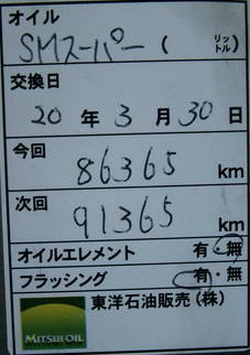 オイル
SMスーパー ( リットル)
交換日
20 年 3 月 30 日
今回
86365 km
次回
91365 km
オイルエレメント 有・無
フラッシング 有・無
東洋石油販売(株)
MITSUI OIL